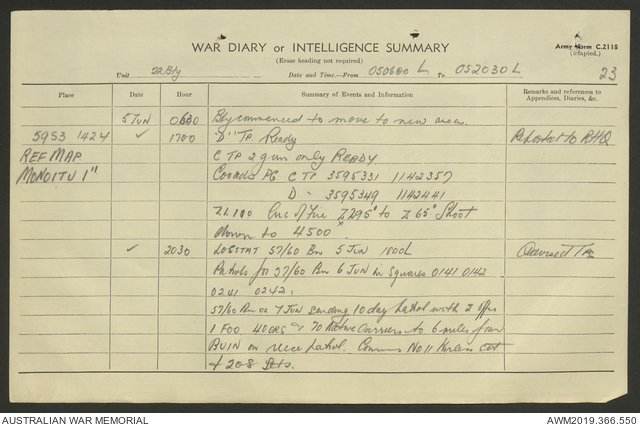 WAR DIARY or INTELLIGENCE SUMMARY
(Erase heading not required)
Army Form C.2118
(Adapted.)
Unit 2 Bty Date and Time.—From 050600 L To 052030 L
23
Place Date Hour Summary of Events and Information Remarks and references to Appendices, Diaries, &c.
5 JUN 0630 Bty commenced to move to new area.
5953 1424 ✓ 1700 D" Tp. Ready Reported to RHQ
REF MAP C TP 2 guns only READY
MONOITU 1" Coords PG C TP 3595331 1142357
D " 3595349 1142441
ZL 100 Arc of Fire Z 295° to Z 65° Shoot
down to 4500
✓ 2030 LOCSTAT 57/60 Bn 5 JUN 1800L Advised
Patrols for 57/60 Bn 6 JUN in Squares 0141 0142
0241 0242.
57/60 Bn on 7 JUN sending 10 day patrol with 2 offrs
1 FOO 40 ORS & 70 Native Carriers to 6 miles from
BUIN on recce patrol. Comns No 11 Wireless set
& 208 Sets.
AUSTRALIAN WAR MEMORIAL
AWM2019.366.550